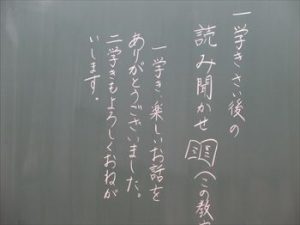 一学きさい後の
読み聞かせ（この教
一学き楽しいお話を
ありがとうございました。
二学きもよろしくおねが
いします。